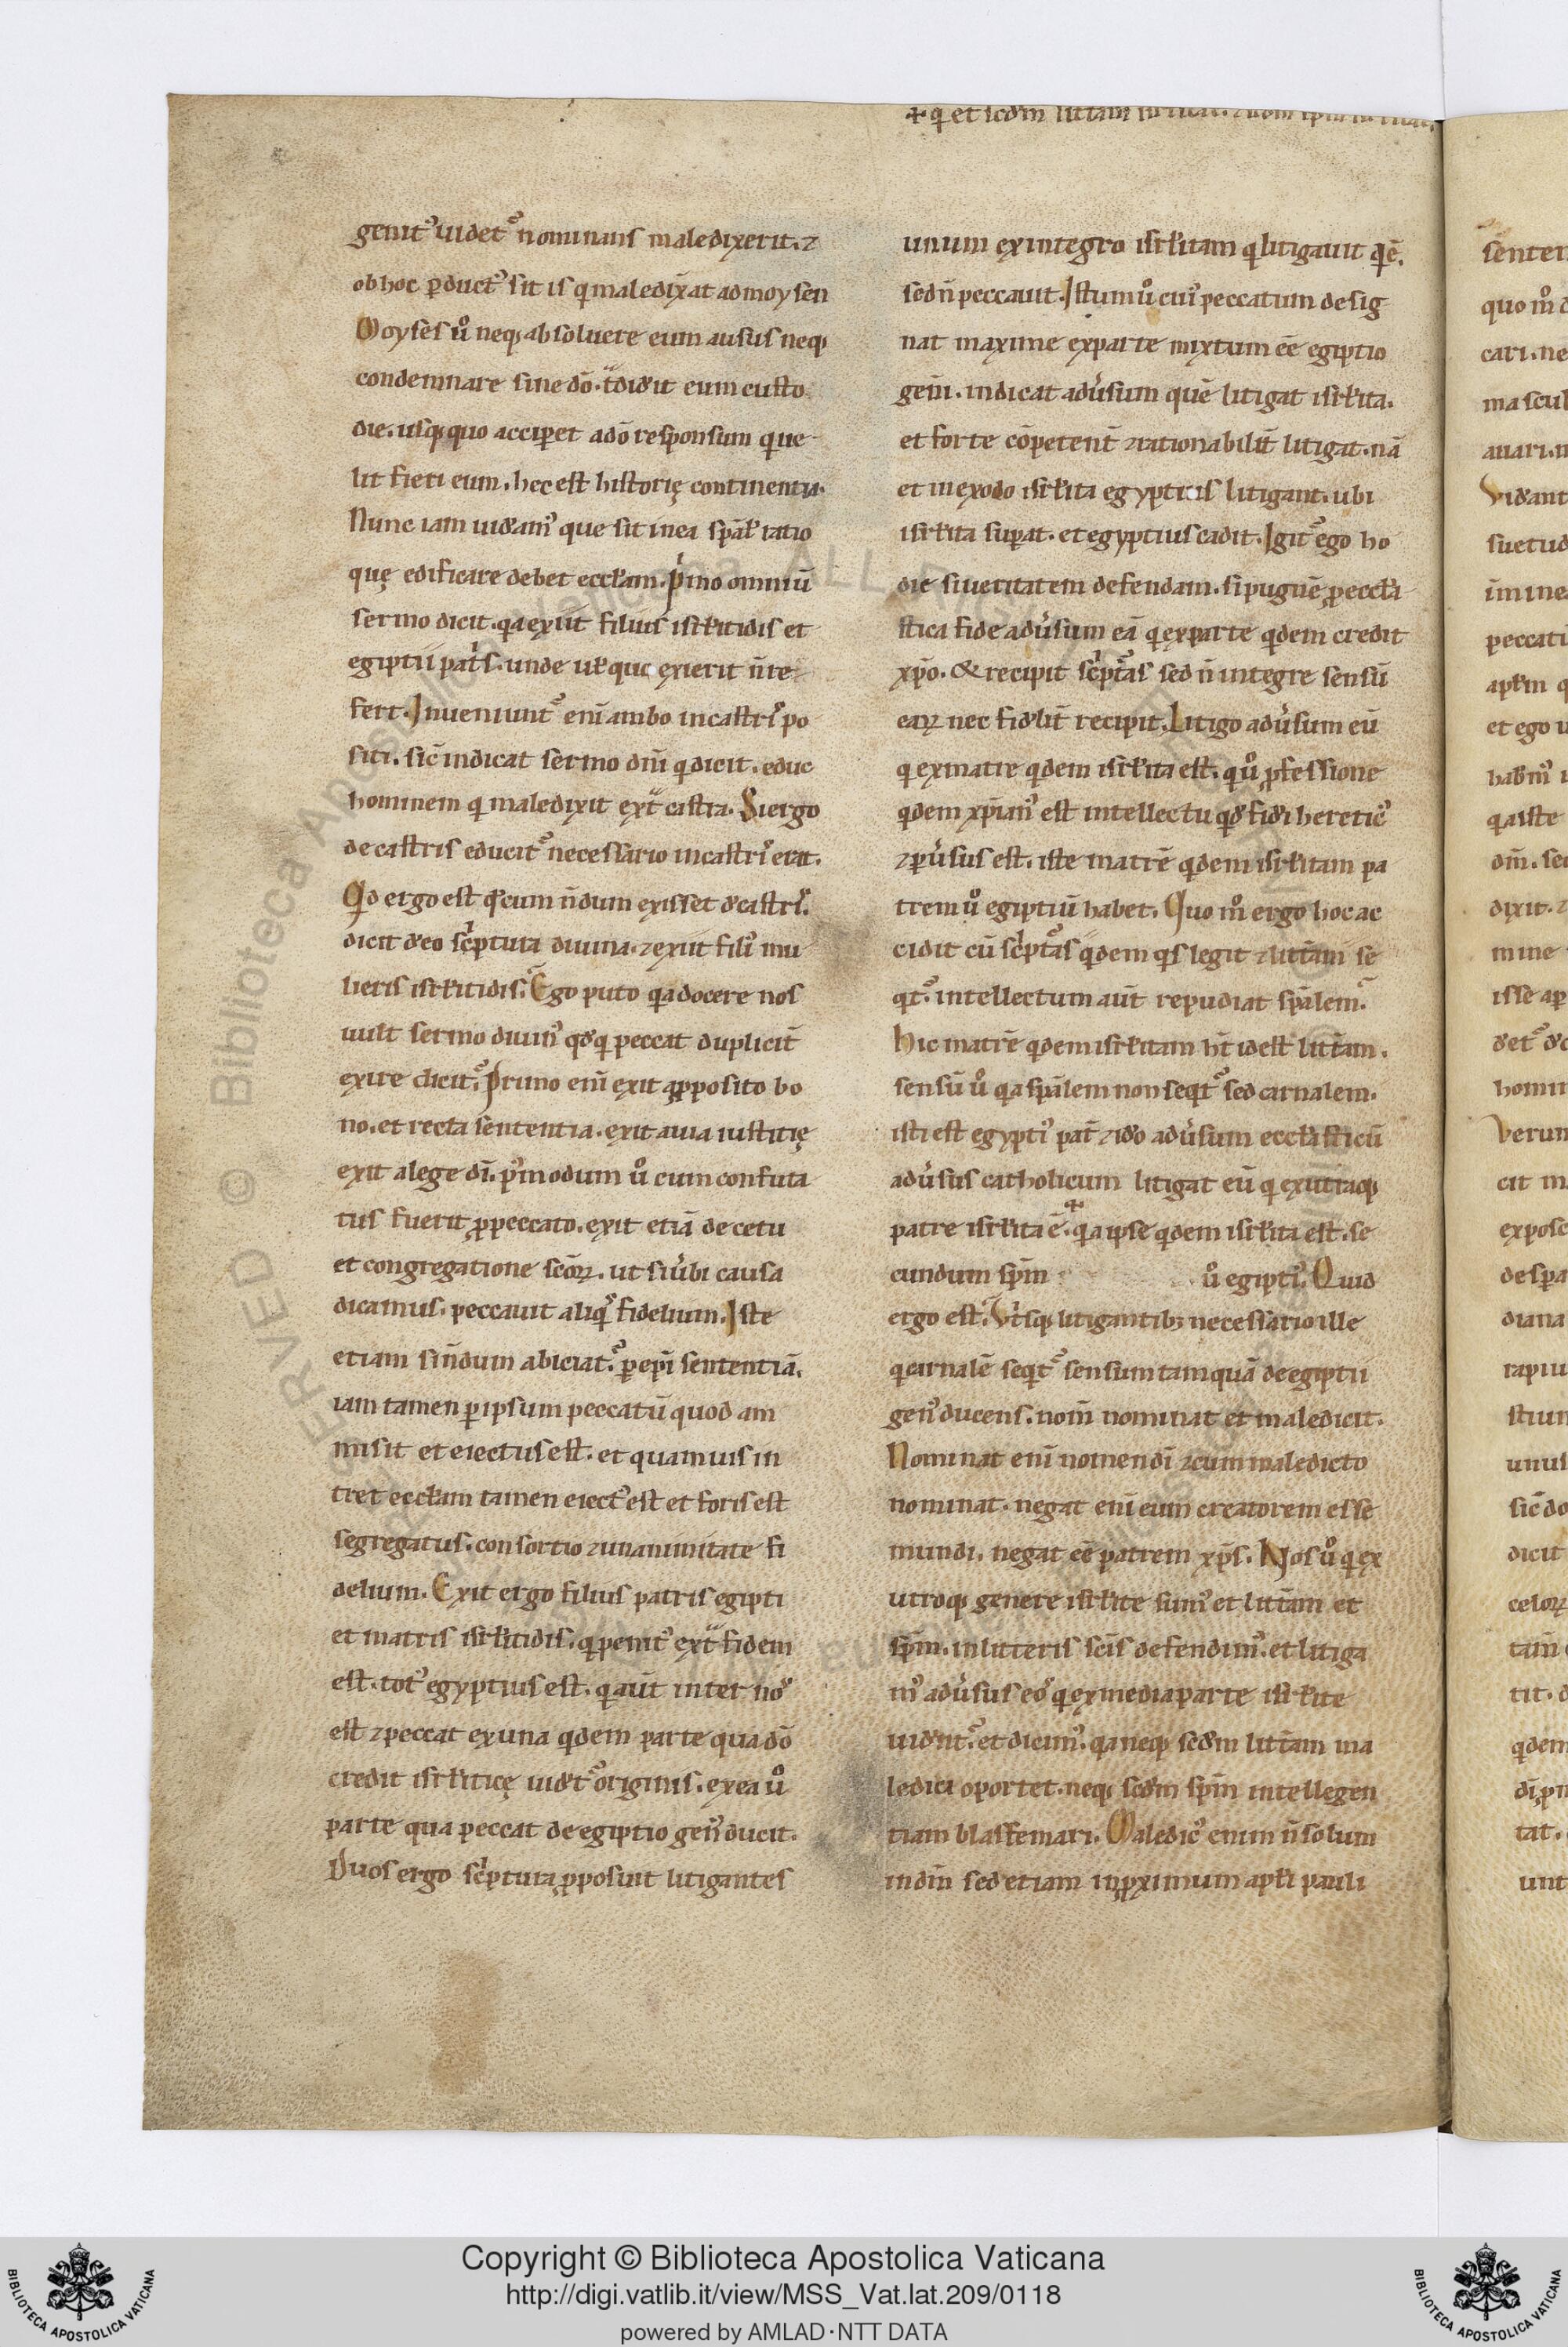 ✢ q et scdm littam
genit᾽ uidet᷎ nominans maledixerit. ⁊
ob hoc ꝑduct᾽ sit is q maledix̄at ad moysen
Moyses ů neq; absoluere eum ausus neq;
condemnare sine dō. tdidit eum custo
die. usq; quo acciperet a dō responsum que
lit fieri eum. hec est historię continentia.
Nunc iam uideam᾽ que sit in ea spāl ratio
quę edificare debet eccłam. p̍mo omniū
sermo dicit. qa exiit filius isrłitidis et
egiptii pat̍s. unde uł quo exierit n̄ re
fert. Inueniunt᷎ eni ambo in castr᾽ po
siti. sic̄ indicat sermo dn̄i q dicit. educ
hominem q maledixit ext castra. Si ergo
de castris educit᷎ necessario in castr᾽ erat.
Qd ergo est qđ cum n̄dum exisset đ castr᾽.
dicit đ eo sc̍ptura diuina. ⁊ exiit fili᾽ mu
lieris isrłitidis. Ego puto qa docere nos
uult sermo diuin᾽ qđ q peccat duplicit̄
exire dicit᷎. Primo eni exit a ꝓposito bo
no. et recta sententia. exit a uia iustitię
exit a lege dī. p᾽modum ů cum confuta
tus fuerit ꝓ peccato. exit etiā de cetu
et congregatione scōꝝ. ut si u̍bi causa
dicamus. peccauit aliq᾽ fidelium. Iste
etiam si n̄dum abiciat᷎. ꝑ epī sententiā.
iam tamen ꝑ ipsum peccatū quod am
misit et eiectus est. et quamuis in
tret eccłam tamen eiect᾽ est et foris est
segregatus. consortio ⁊ unanimitate fi
delium. Exit ergo filius patris egipti
et matris isrłitidis. q penit᾽ ext fidem
est. tot᾽ egyptius est. q aūt inter no᾽
est ⁊ peccat ex una qdem parte qua dō
credit isrłiticę uidet᷎ originis. ex ea ů
parte qua peccat de egiptio gen᾽ ducit.
Duos ergo sc̍ptura ꝓposuit litigantes
unum ex integro isrłitam q litigauit qē.
sed n̄ peccauit. Istum ů cui᾽ peccatum desig
nat maxime ex parte mixtum eē egiptio
gen̄i. indicat adu̍sum quē litigat isrłita.
et forte cōpetent̄ ⁊ rationabilit̄ litigat. nā
et in exodo isrłita egyptius litigant. ubi
isrłita supat. et egyptius cadit. Igit᷎ ego ho
die si ueritatem defendam. si pugnē ꝓ eccła
stica fide adu̍sum eā q ex parte qdem credit
xp̄o. & recipit sc̍pt᾽as sed n̄ integre sensū
eaꝝ nec fidelit̄ recipit. Litigo adu̍sum eū
q ex matre qdem isrłita est. q ů ꝓfessione
qdem xp̄ian᾽ est intellectu qđ fidei heretic᾽
⁊ ꝑu̍sus est. iste matrē qdem isrłitam pa
trem ů egiptiū habet. Quo m̊ ergo hoc ac
cidit cū sc̍pt᾽as qdem qs legit ⁊ litt̄am se
qt᷎. intellectum aūt repudiat spālem.
Hic matrē qdem isrłitam h̄t id est litt̄am.
sensū ů qa spālem non seqt᷎ sed carnalem.
isti est egypti᾽ pat̄ ⁊ iđo adu̍sum ecclāsticū
adu̍sus catholicum litigat eū q ex utraq;
patre isrłita ē. ✢ qa ipse qdem isrłita est. se
cundum spm̄ ů egipti᾽. Quid
ergo est. Ut̍sq; litigantib; necessario ille
q carnalē seqt᷎ sensum tamquā de egiptii
gen᾽ ducens. nom̄ nominat et maledicit.
Nominat eni nomen dī ⁊ cum maledicto
nominat. negat eni eum creatorem esse
mundi. negat eē patrem xp̄s. Nos ů q ex
utroq; genere isrłite sum᾽ et litt̄am et
spm̄. in litteris scīs defendim᾽. et litiga
m᾽ adu̍sus eo᾽ q ex media parte isrłite
uidnt᷎. et dicim᾽. qa neq; scđm litt̄am ma
ledici oportet. neq; scđm spm̄ intellegen
tiam blasfemari. Maledic᾽ enim n̄ solum
in dm̄ sed etiam in ꝓximum apłi pauli
Copyright © Biblioteca Apostolica Vaticana
http://digi.vatlib.it/view/MSS_Vat.lat.209/0118
powered by AMLAD·NTT DATA
BIBLIOTECA APOSTOLICA VATICANA
BIBLIOTECA APOSTOLICA VATICANA